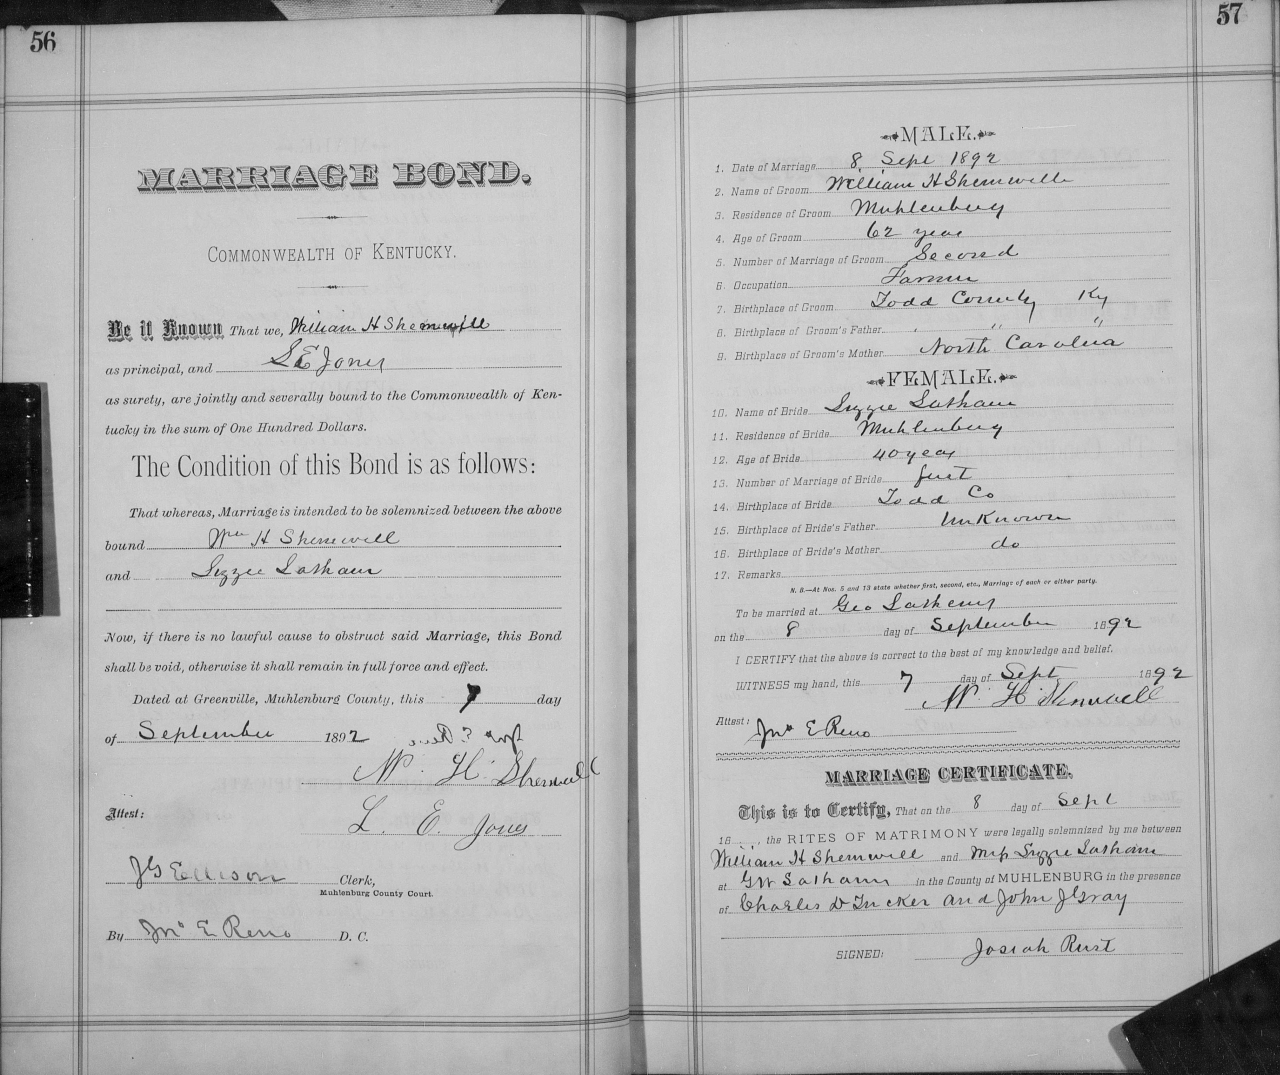 56
MARRIAGE BOND.
COMMONWEALTH OF KENTUCKY.
Be it Known That we, William H Shemwell
as principal, and L E Jones
as surety, are jointly and severally bound to the Commonwealth of Ken-
tucky in the sum of One Hundred Dollars.
The Condition of this Bond is as follows:
That whereas, Marriage is intended to be solemnized between the above
bound Wm H Shemwell
and Lizzie Latham
Now, if there is no lawful cause to obstruct said Marriage, this Bond
shall be void, otherwise it shall remain in full force and effect.
Dated at Greenville, Muhlenburg County, this 7 day
of September 1892
W. H. Shemwell
Attest:
L. E. Jones
J G Ellison Clerk,
Muhlenburg County Court.
By Jno E Reno D. C.
57
MALE.
1. Date of Marriage 8 Sept 1892
2. Name of Groom William H Shemwell
3. Residence of Groom Muhlenburg
4. Age of Groom 62 years
5. Number of Marriage of Groom Second
6. Occupation Farmer
7. Birthplace of Groom Todd County Ky
8. Birthplace of Groom's Father " " "
9. Birthplace of Groom's Mother North Carolina
FEMALE.
10. Name of Bride Lizzie Latham
11. Residence of Bride Muhlenburg
12. Age of Bride 40 years
13. Number of Marriage of Bride first
14. Birthplace of Bride Todd Co
15. Birthplace of Bride's Father UnKnown
16. Birthplace of Bride's Mother do
17. Remarks
N. B.—At Nos. 5 and 13 state whether first, second, etc., Marriage of each or either party.
To be married at Geo Lathams
on the 8 day of September 1892
I CERTIFY that the above is correct to the best of my knowledge and belief.
WITNESS my hand, this 7 day of Sept 1892
W. H. Shemwell
Attest: Jno E Reno
MARRIAGE CERTIFICATE.
This is to Certify, That on the 8 day of Sept
18 , the RITES OF MATRIMONY were legally solemnized by me between
William H Shemwell and Miss Lizzie Latham
at GW Lathams in the County of MUHLENBURG in the presence
of Charles D Tucker and John J Gray
SIGNED: Josiah Rust